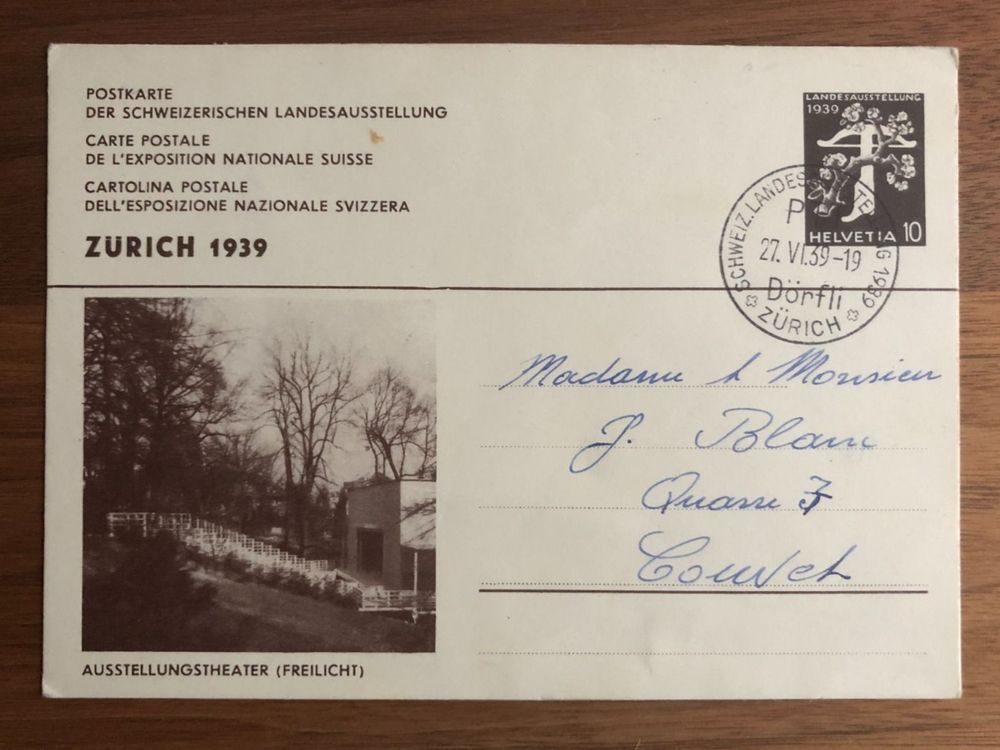 POSTKARTE
DER SCHWEIZERISCHEN LANDESAUSSTELLUNG
CARTE POSTALE
DE L'EXPOSITION NATIONALE SUISSE
CARTOLINA POSTALE
DELL'ESPOSIZIONE NAZIONALE SVIZZERA
ZÜRICH 1939
LANDESAUSSTELLUNG
1939
HELVETIA 10
SCHWEIZ. LANDES
G 1939
P
27. VI. 39-19
Dörfli
ZÜRICH
Madame & Monsieur
J. Blanc
Couvet
AUSSTELLUNGSTHEATER (FREILICHT)